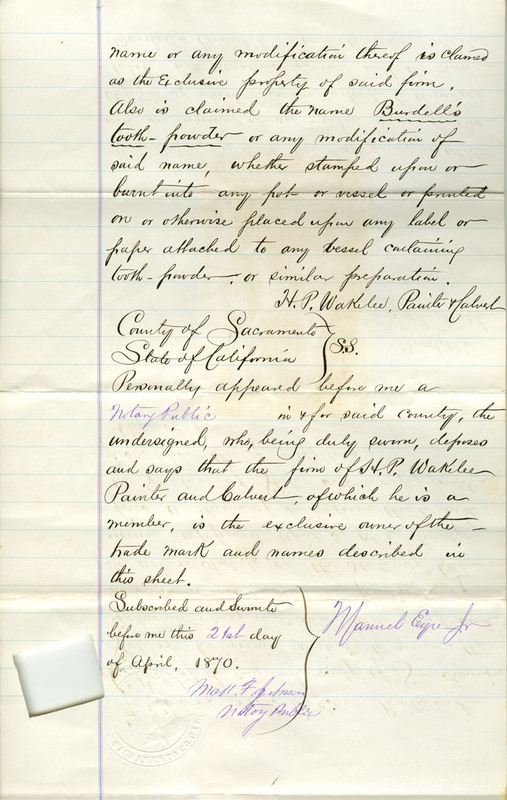 name or any modification thereof is claimed
as the Exclusive property of said firm.
Also is claimed the name Burdell's
tooth-powder or any modification of
said name, whether stamped upon or
burnt into any pot or vessel or printed
on or otherwise placed upon any label or
paper attached to any vessel containing
tooth-powder, or similar preparation.
H. P. Wakelee, Painter & Calvert
County of Sacramento
State of California } S.S.
Personally appeared before me a
Notary Public in & for said county, the
undersigned, who, being duly sworn, deposes
and says that the firm of H. P. Wakelee
Painter and Calvert, of which he is a
member, is the exclusive owner of the
trade mark and names described in
this sheet.
Subscribed and Sworn to
before me this 21st day
of April, 1870.
Manuel Eyre Jr
Matt. F. Johnson
Notary Public